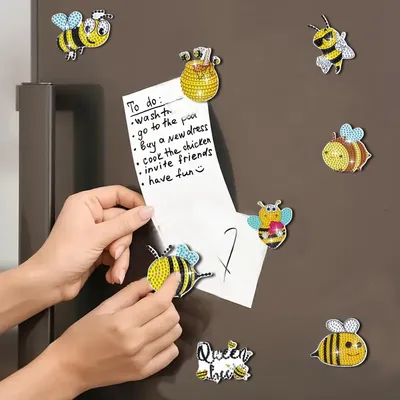 To do:
• wash
• go to the
• buy a new dress
• cook the chicken
• invite friends
• have fun☺
Queen
Bee